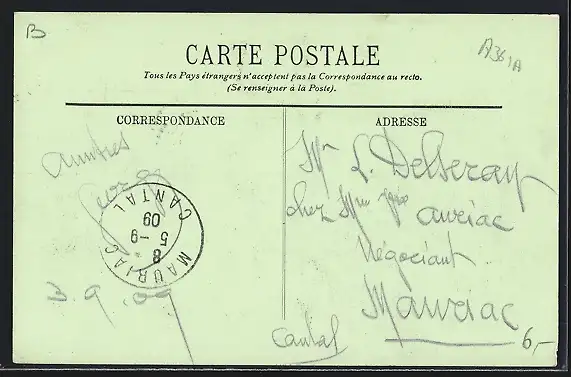 B
A361A
CARTE POSTALE
Tous les Pays étrangers n'acceptent pas la Correspondance au recto.
(Se renseigner à la Poste).
CORRESPONDANCE
ADRESSE
Amitiés
3.9.09
MAURIAC
CANTAL
8
5-9
09
Mr L. Delseray
chez Mme
auriac
Négociant
Mauriac
Cantal
6,-